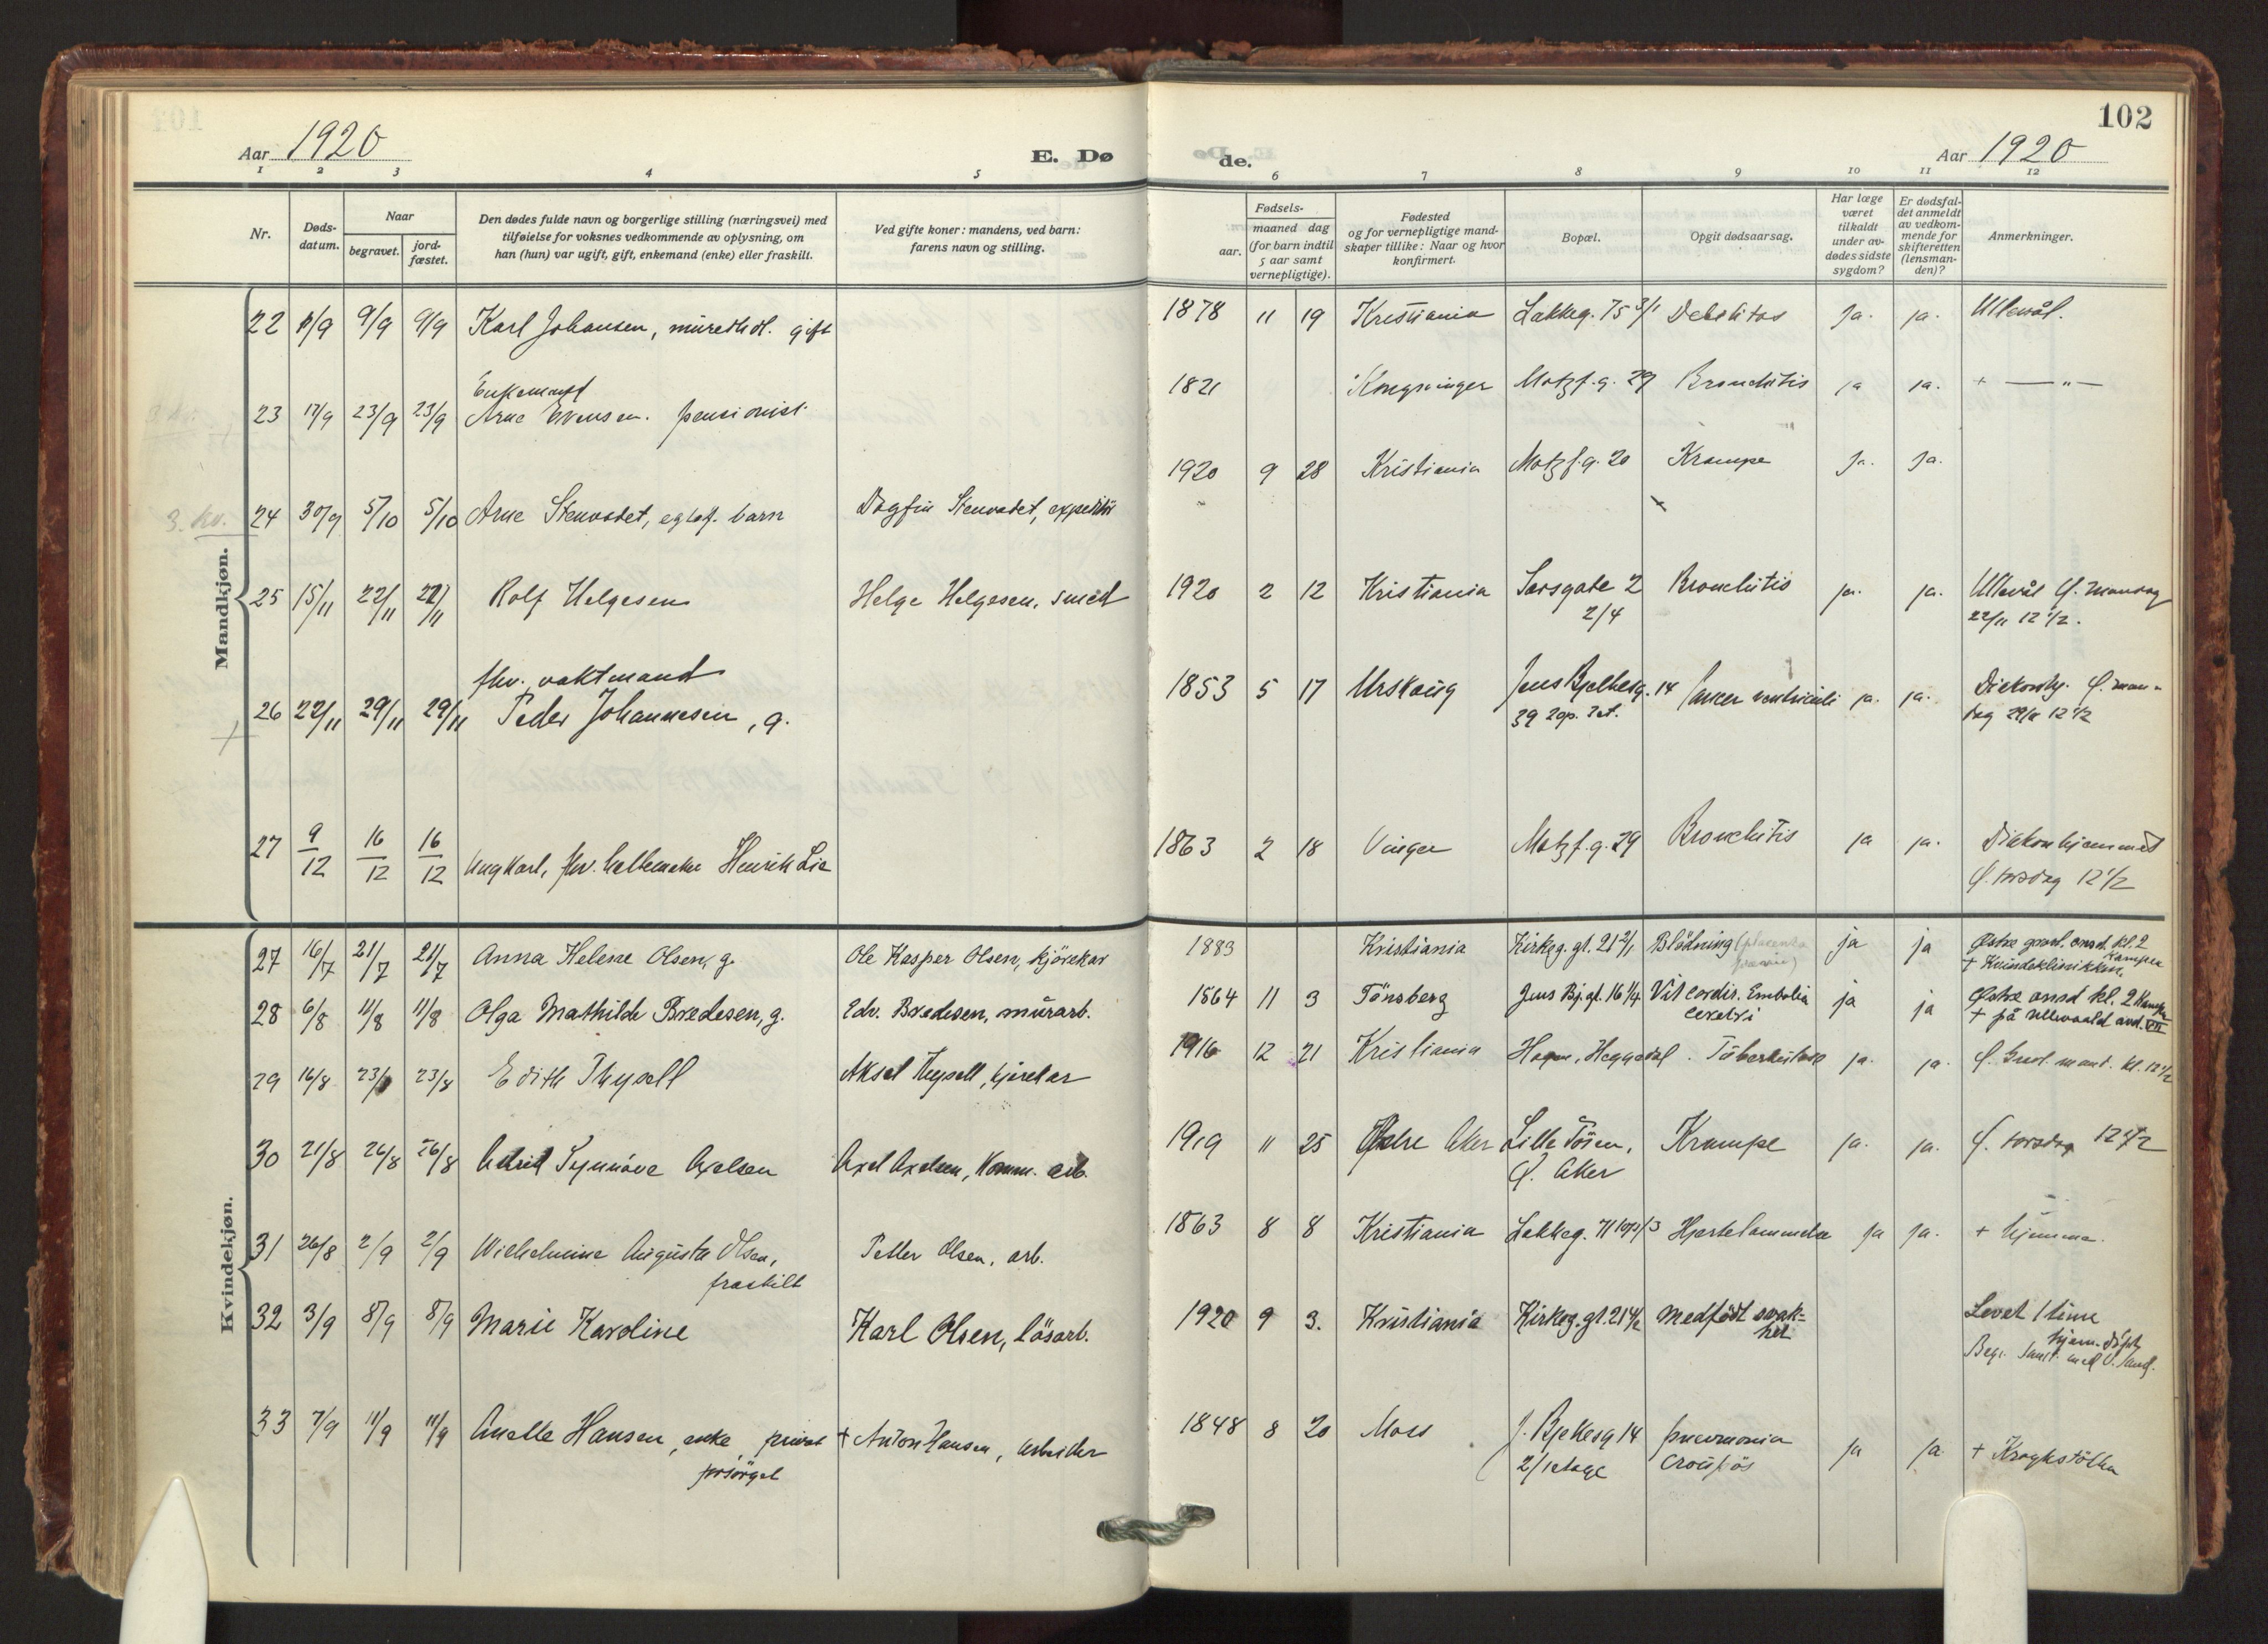 102
Aar 1920
E. Dø
de.
Aar 1920
1 2 3 4 5 6 7 8 9 10 11 12
Nr.
Døds-
datum.
Naar
begravet.
jord-
fæstet.
Den dødes fulde navn og borgerlige stilling (næringsvei) med
tilføielse for voksnes vedkommende av oplysning, om
han (hun) var ugift, gift, enkemand (enke) eller fraskilt.
Ved gifte koner: mandens, ved barn:
farens navn og stilling.
Fødsels-
aar.
maaned dag
(for barn indtil
5 aar samt
vernepligtige).
Fødested
og for vernepligtige mand-
skaper tillike: Naar og hvor
konfirmert.
Bopæl.
Opgit dødsaarsag.
Har læge
været
tilkaldt
under av-
dødes sidste
sygdom?
Er dødsfal-
det anmeldt
av vedkom-
mende for
skifteretten
(lensman-
den)?
Anmerkninger.
Mandkjøn.
22 9/9 9/9 Karl Johansen, gift 1878 11 19 Kristiania Lakkeg. 75 3/1 Debilitas Ja. ja. Ullevål.
Enkemand
23 17/9 23/9 23/9 Arne Evensen. pensionist 1821 Kongsvinger Motzf.g. 29 Bronchitis ja ja. + — „ —
3. kv. 24 30/9 5/10 5/10 Arne Stenvadet, egtef. barn Dagfin Stenvadet, expeditør 1920 9 28 Kristiania Motzf.g. 20 Krampe Ja. Ja.
25 15/11 22/11 22/11 Rolf Helgesen Helge Helgesen, smed 1920 2 12 Kristiania Sarsgate 2 Bronchitis ja. ja. Ullevål Ø. Mandag
2/4 22/11 12 1/2.
fhv. vaktmand
26 22/11 29/11 29/11 Peder Johannesen, g. 1853 5 17 Urskoug Jens Bjelkesg. 14 Cancer ventriculi ja. ja. Diakonhj. Ø. man-
dag 29/11 12 1/2
27 9/12 16/12 16/12 Ungkarl, fhv. Henrik Lie 1863 2 18 Vinger Motzf.g. 29 Bronchitis ja ja. Diakonhjemmet
Ø. torsdag 12 1/2
Kvindekjøn.
27 16/7 21/7 21/7 Anna Helene Olsen, g. Ole Kasper Olsen, kjørekar 1883 Kristiania Kirkeg. gt. 21 2/1 Blødning (placenta ja ja Østre gravl. onsd. kl. 2
prævia) Kampen
+ Kvindeklinikken.
28 6/8 11/8 11/8 Olga Mathilde Bredesen, g. Edv. Bredesen, murarb. 1864 11 3 Tönsberg Jens Bj. gt. 16 1/4. Vit. cordis. Embolia ja ja Østre onsd kl. 2 Kampen
cerebri + på Ullevaal avd. VII
29 16/8 23/8 23/8 Edith Thysell Aksel Thysell, kjørekar 1916 12 21 Kristiania Hagen, Heggedal. Tuberkulose ja. ja. Ø. Gravl. mand. kl. 12 1/2
30 21/8 26/8 26/8 Astrid Synnöve Axelsen Axel Axelsen, Komm. arb. 1919 11 25 Østre Aker Lille Töien, Krampe ja. ja. Ø. torsdag 12 1/2
Ø. Aker
31 26/8 2/9 2/9 Wilhelmine Augusta Olsen, Petter Olsen, arb. 1863 8 8 Kristiania Lakkeg. 71 Hjertelammelse Ja Ja. + hjemme.
fraskilt
32 3/9 8/9 8/9 Marie Karoline Karl Olsen, lösarb. 1920 9 3. Kristiania Kirkeg. gt. 21 4/2 Medfödt svak-
het Levet 1 time
hjem. döpt
33 7/9 11/9 11/9 Anette Hansen, enke, privat + Anton Hansen, arbeider 1848 8 20 Moss J. Bjelkesg 14 pneumonia ja ja + Kroghstötten
forsörget 2/1 etage croupös